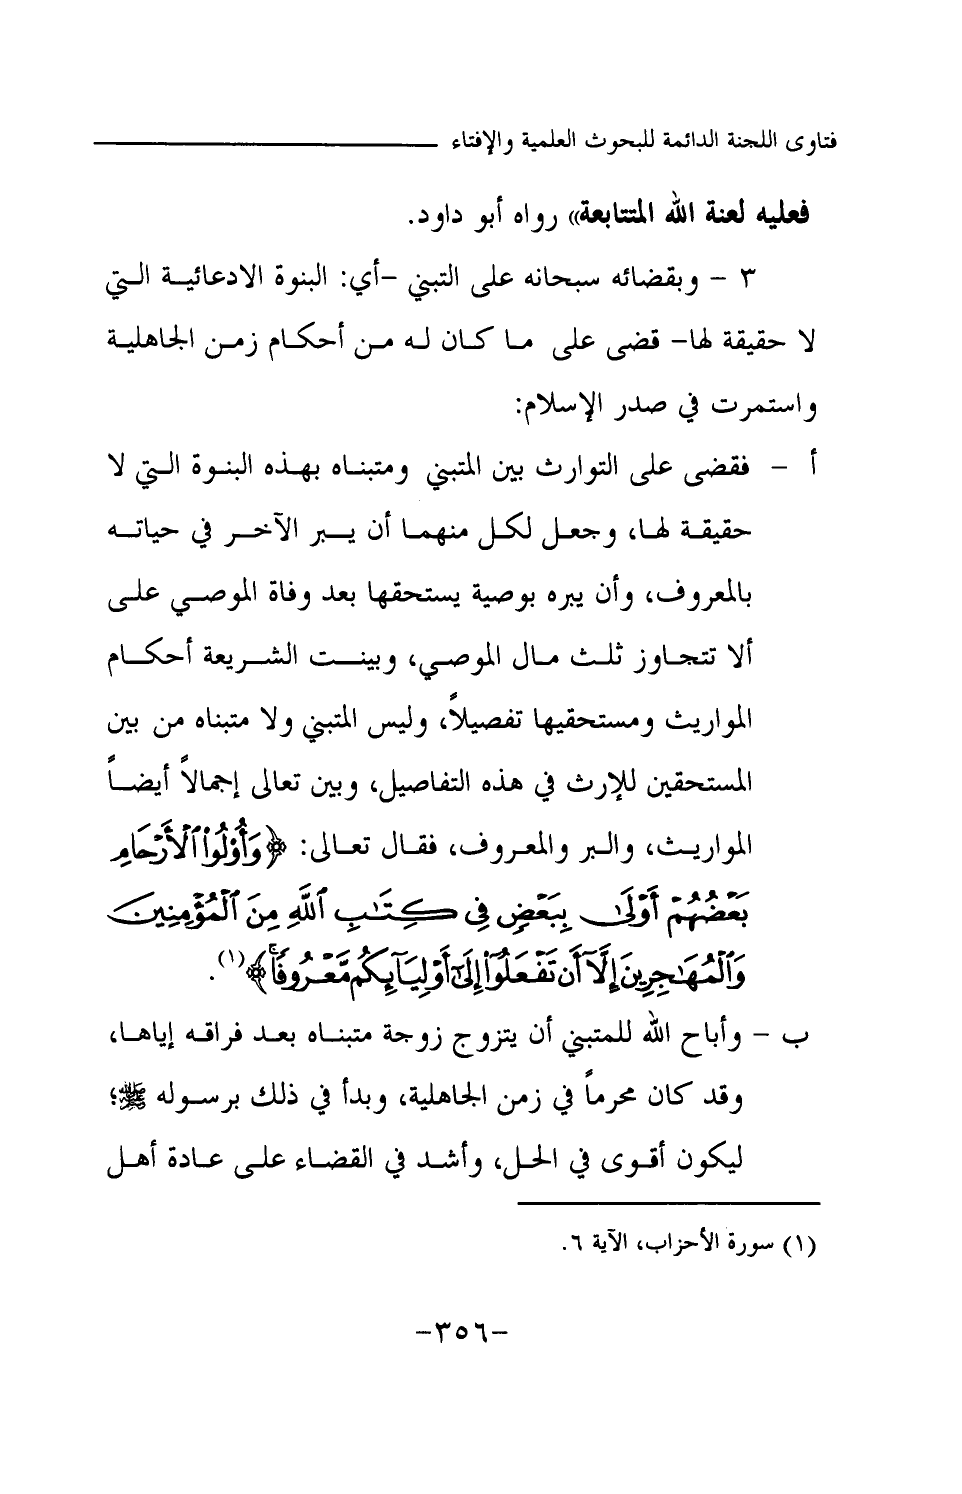 فتاوى اللجنة الدائمة للبحوث العلمية والإفتاء
فعليه لعنة الله المتتابعة» رواه أبو داود.
٣ - وبقضائه سبحانه على التبني -أي: البنوة الادعائية التي
لا حقيقة لها- قضى على ما كان له من أحكام زمن الجاهلية
واستمرت في صدر الإسلام:
أ - فقضى على التوارث بين المتبني ومتبناه بهذه البنوة التي لا
حقيقة لها، وجعل لكل منهما أن يبر الآخر في حياته
بالمعروف، وأن يبره بوصية يستحقها بعد وفاة الموصي على
ألا تتجاوز ثلث مال الموصي، وبينت الشريعة أحكام
المواريث ومستحقيها تفصيلاً، وليس المتبني ولا متبناه من بين
المستحقين للإرث في هذه التفاصيل، وبين تعالى إجمالاً أيضاً
المواريث، والبر والمعروف، فقال تعالى: ﴿وَأُوْلُواْ ٱلْأَرْحَامِ
بَعْضُهُمْ أَوْلَىٰ بِبَعْضٍ فِي كِتَٰبِ ٱللَّهِ مِنَ ٱلْمُؤْمِنِينَ
وَٱلْمُهَٰجِرِينَ إِلَّآ أَن تَفْعَلُوٓاْ إِلَىٰٓ أَوْلِيَآئِكُم مَّعْرُوفًاۚ﴾(١).
ب - وأباح الله للمتبني أن يتزوج زوجة متبناه بعد فراقه إياها،
وقد كان محرماً في زمن الجاهلية، وبدأ في ذلك برسوله ﷺ؛
ليكون أقوى في الحل، وأشد في القضاء على عادة أهل
(١) سورة الأحزاب، الآية ٦.
-٣٥٦-